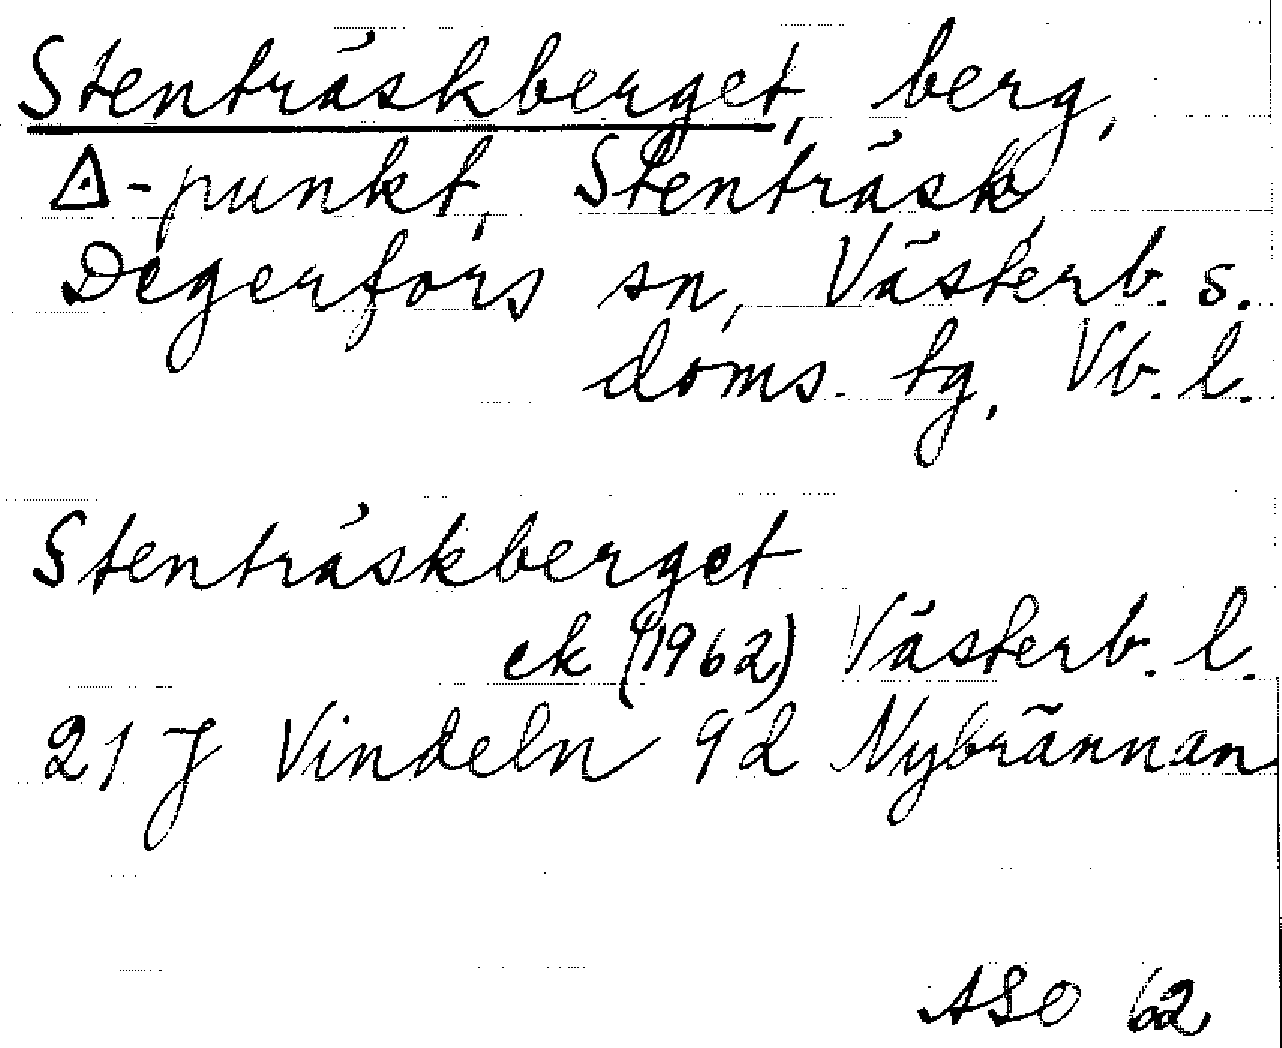 Stenträskberget, berg,
△-punkt, Stenträsk,
Degerfors sn, Västerb. s.
doms. tg, Vb. l.
Stenträskberget
ek (1962) Västerb. l.
21 J Vindeln 9 d Nybrännan
ASO 62